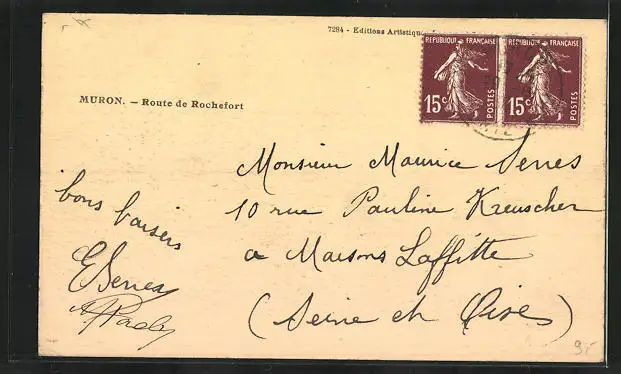 7284 - Editions Artistiqu
REPUBLIQUE FRANÇAISE
15c
POSTES
REPUBLIQUE FRANÇAISE
15c
POSTES
MURON. — Route de Rochefort
Monsieur Maurice Serres
10 rue Pauline Kreuscher
a Maisons Laffitte
(Seine et Oise)
bons baisers
E Serres